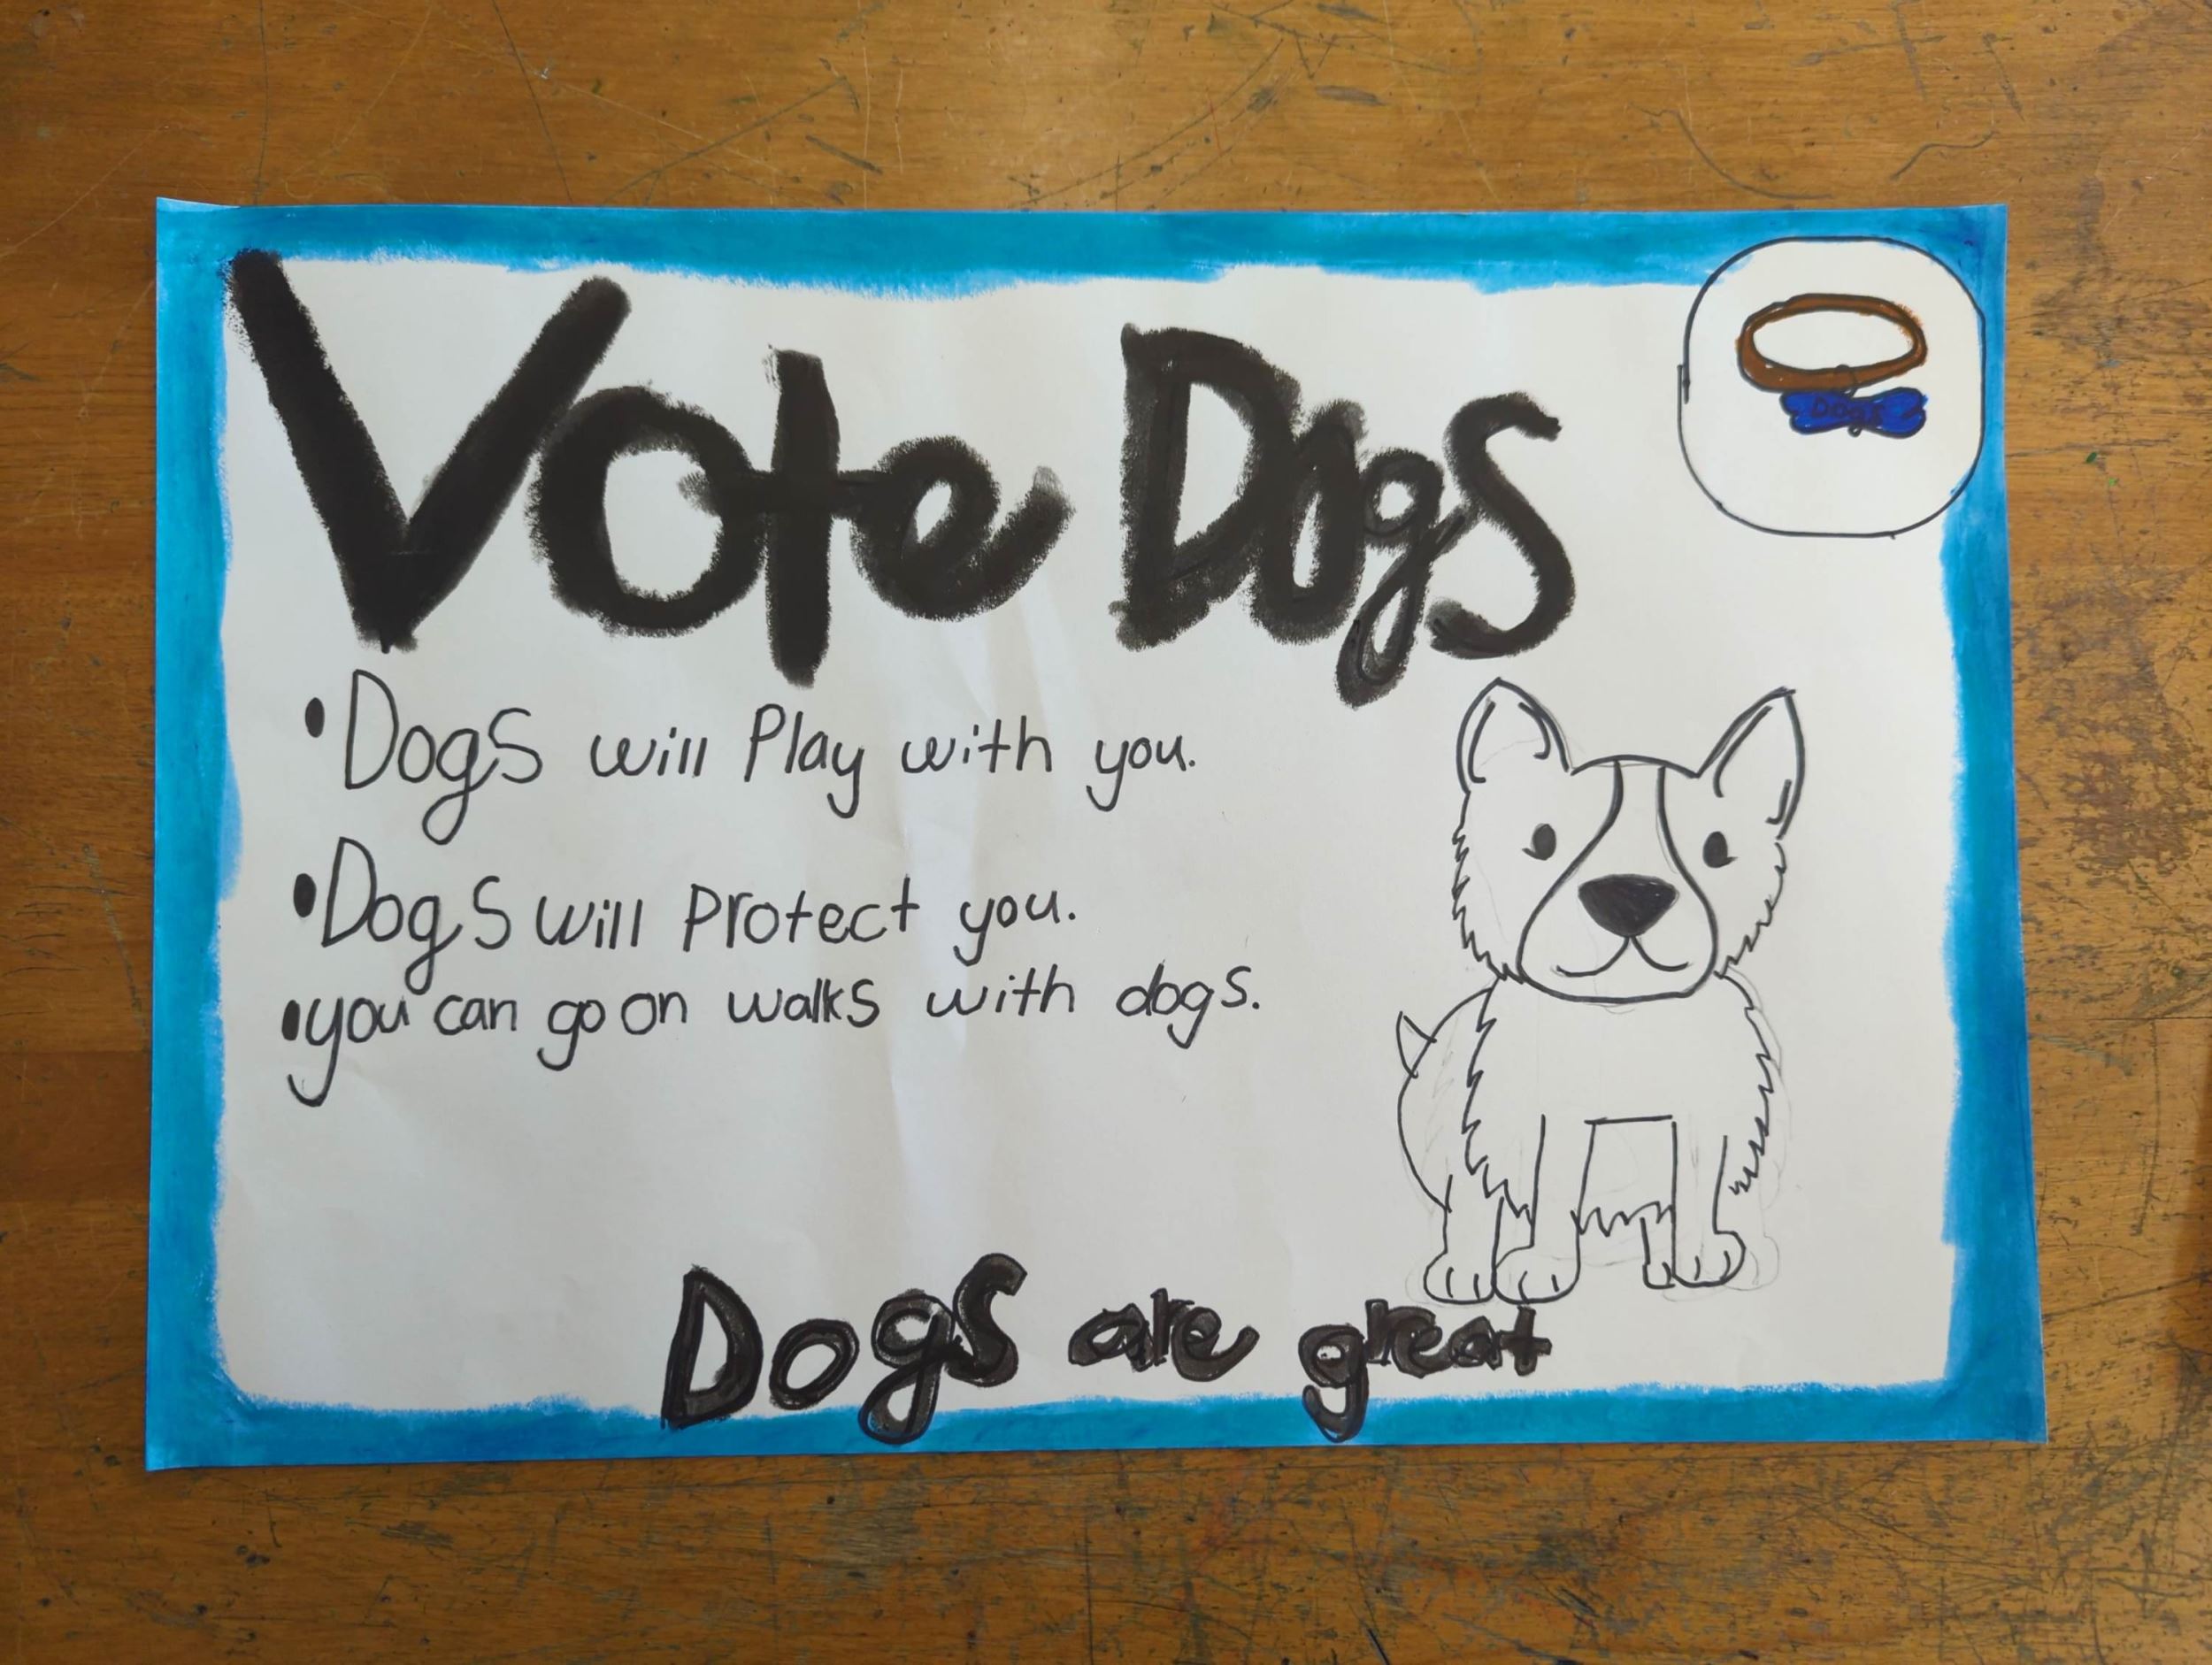 Vote Dogs
DOGS
• Dogs will Play with you.
• Dogs will Protect you.
• you can go on walks with dogs.
Dogs are great